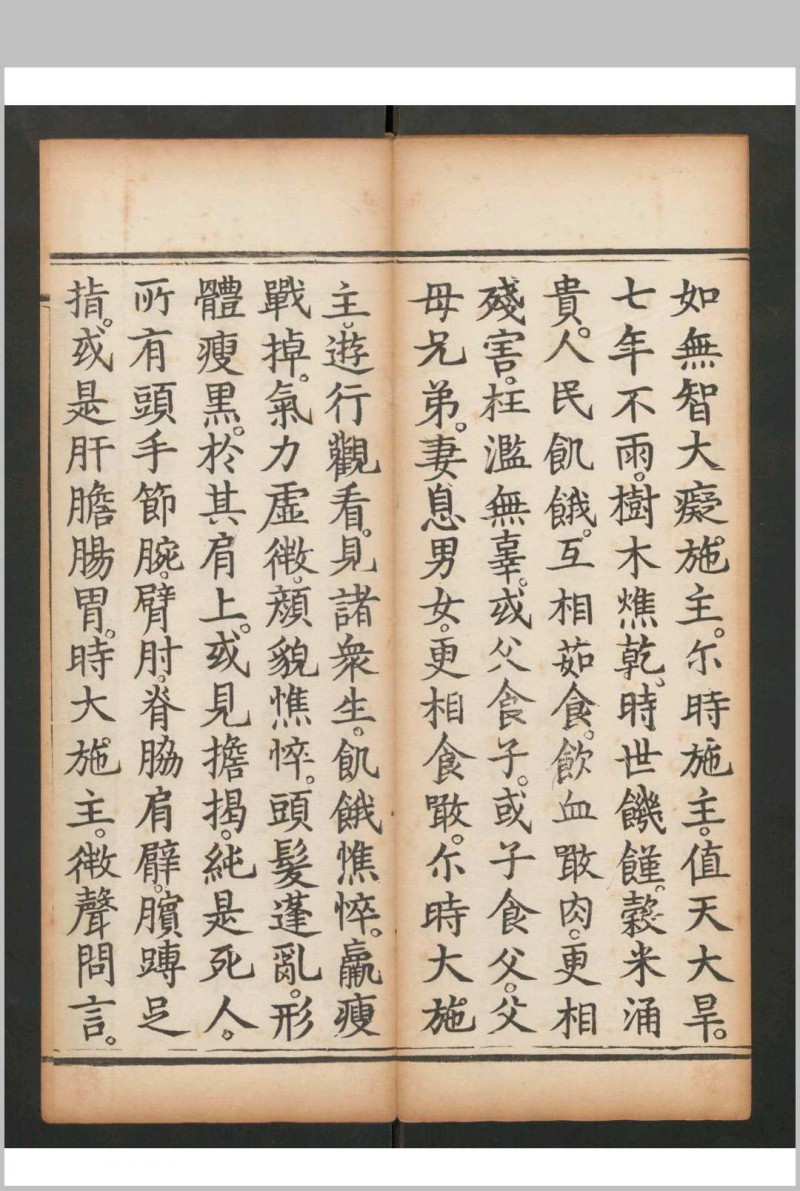 如無智大癡。施主。尓時施主。值天大旱。
七年不雨。樹木燋乾。時世饑饉。穀米涌
貴。人民飢餓。互相茹食。飲血噉肉。更相
殘害。枉濫無辜。或父食子。或子食父。父
母兄弟。妻息男女。更相食噉。尓時大施
主。遊行觀看。見諸衆生。飢餓憔悴。羸瘦
戰掉。氣力虛微。顏貌憔悴。頭髮蓬亂。形
體瘦黑。於其肩上。或見擔揭。純是死人。
所有頭手節腕。臂肘。脊脇肩臂。臏䏝足
指。或是肝膽腸胃。時大施主。微聲問言。